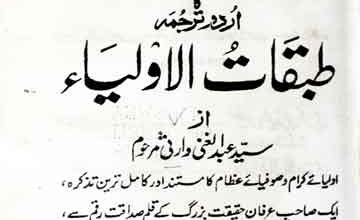 اُردو ترجمہ
طبقاتُ الاولیاء
از
سیّد عبدالغنی وارثی مرحوم
اولیائے کرام و صوفیائے عظام کا مستند اور کامل ترین تذکرہ،
ایک صاحبِ عرفانِ حقیقت بزرگ کے قلمِ صداقت رقم سے،